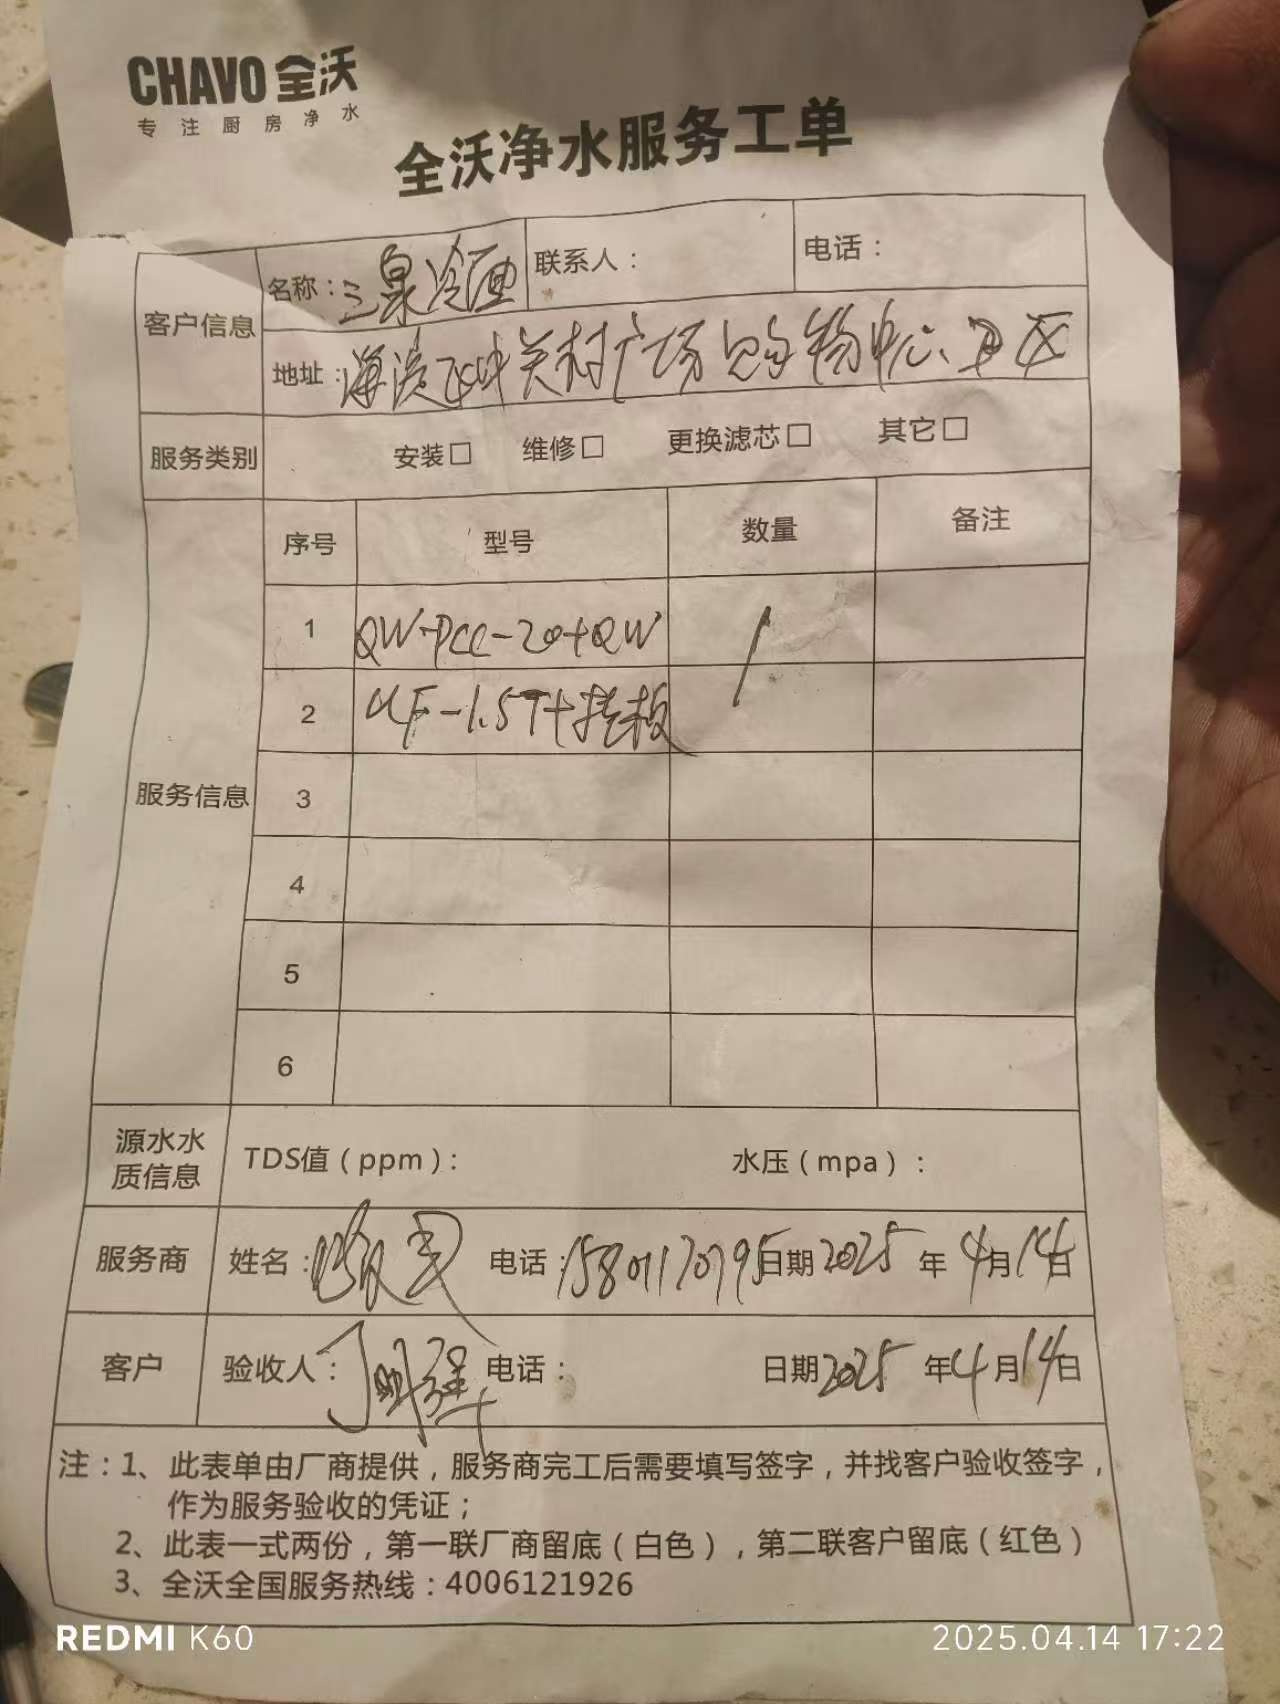 CHAVO 全沃
专注厨房净水
全沃净水服务工单
客户信息
名称：三泉冷面
联系人：
电话：
地址：海淀区中关村广场购物中心、卫区
服务类别
安装□ 维修□ 更换滤芯□ 其它□
服务信息
序号 型号 数量 备注
1 QW-PCC-20+QW 1
2 UF-1.5T+挂板
3
4
5
6
源水水质信息
TDS值（ppm）： 水压（mpa）：
服务商 姓名： 电话：15801170795 日期2025年4月14日
客户 验收人： 电话： 日期2025年4月14日
注：1、此表单由厂商提供，服务商完工后需要填写签字，并找客户验收签字，
作为服务验收的凭证；
2、此表一式两份，第一联厂商留底（白色），第二联客户留底（红色）
3、全沃全国服务热线：4006121926
REDMI K60
2025.04.14 17:22